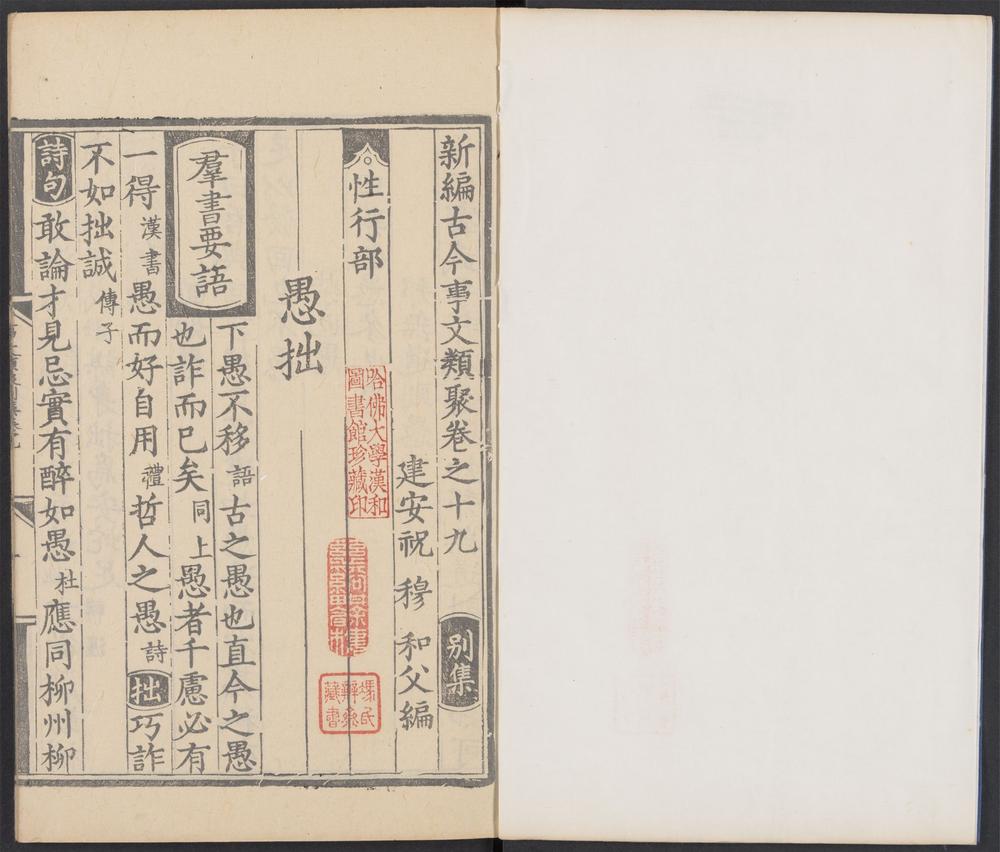 新編古今事文類聚卷之十九 别集
建安祝 穆 和父編
性行部
愚拙
羣書要語 下愚不移 語 古之愚也直今之愚
也詐而已矣 同上 愚者千慮必有
一得 漢書 愚而好自用 禮 哲人之愚 詩 拙 巧詐
不如拙誠 傅子
詩句 敢論才見忌實有醉如愚 杜 應同柳州柳
哈佛大學漢和
圖書館珍藏印